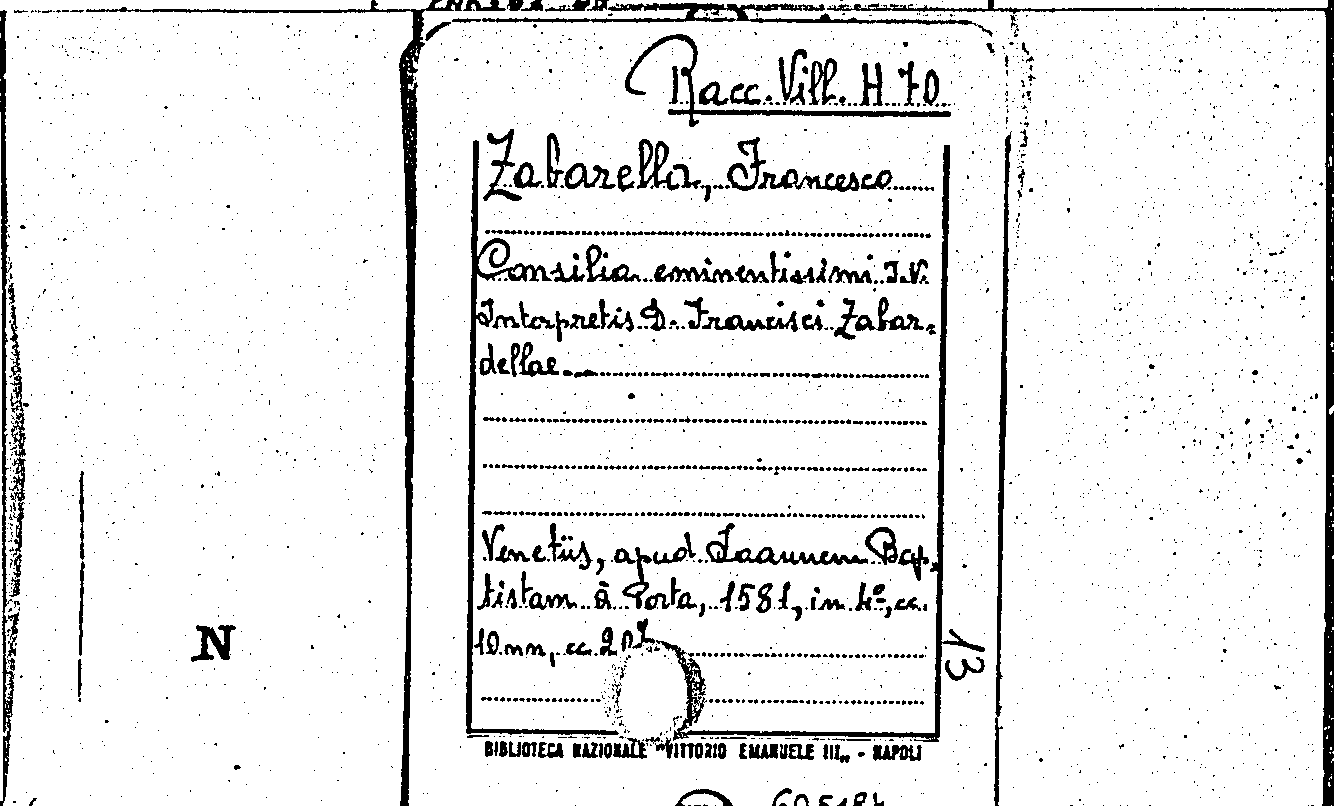 Racc. Vill. H 70
Zabarella, Francesco
Consilia eminentissimi J.V.
Interpretis D. Francisci Zabar-
dellae...
Venetiis, apud Joannem Bap-
tistam à Porta, 1581, in 4º, cc.
10 nn, cc. 207
13
N
BIBLIOTECA NAZIONALE "VITTORIO EMANUELE III„ - NAPOLI